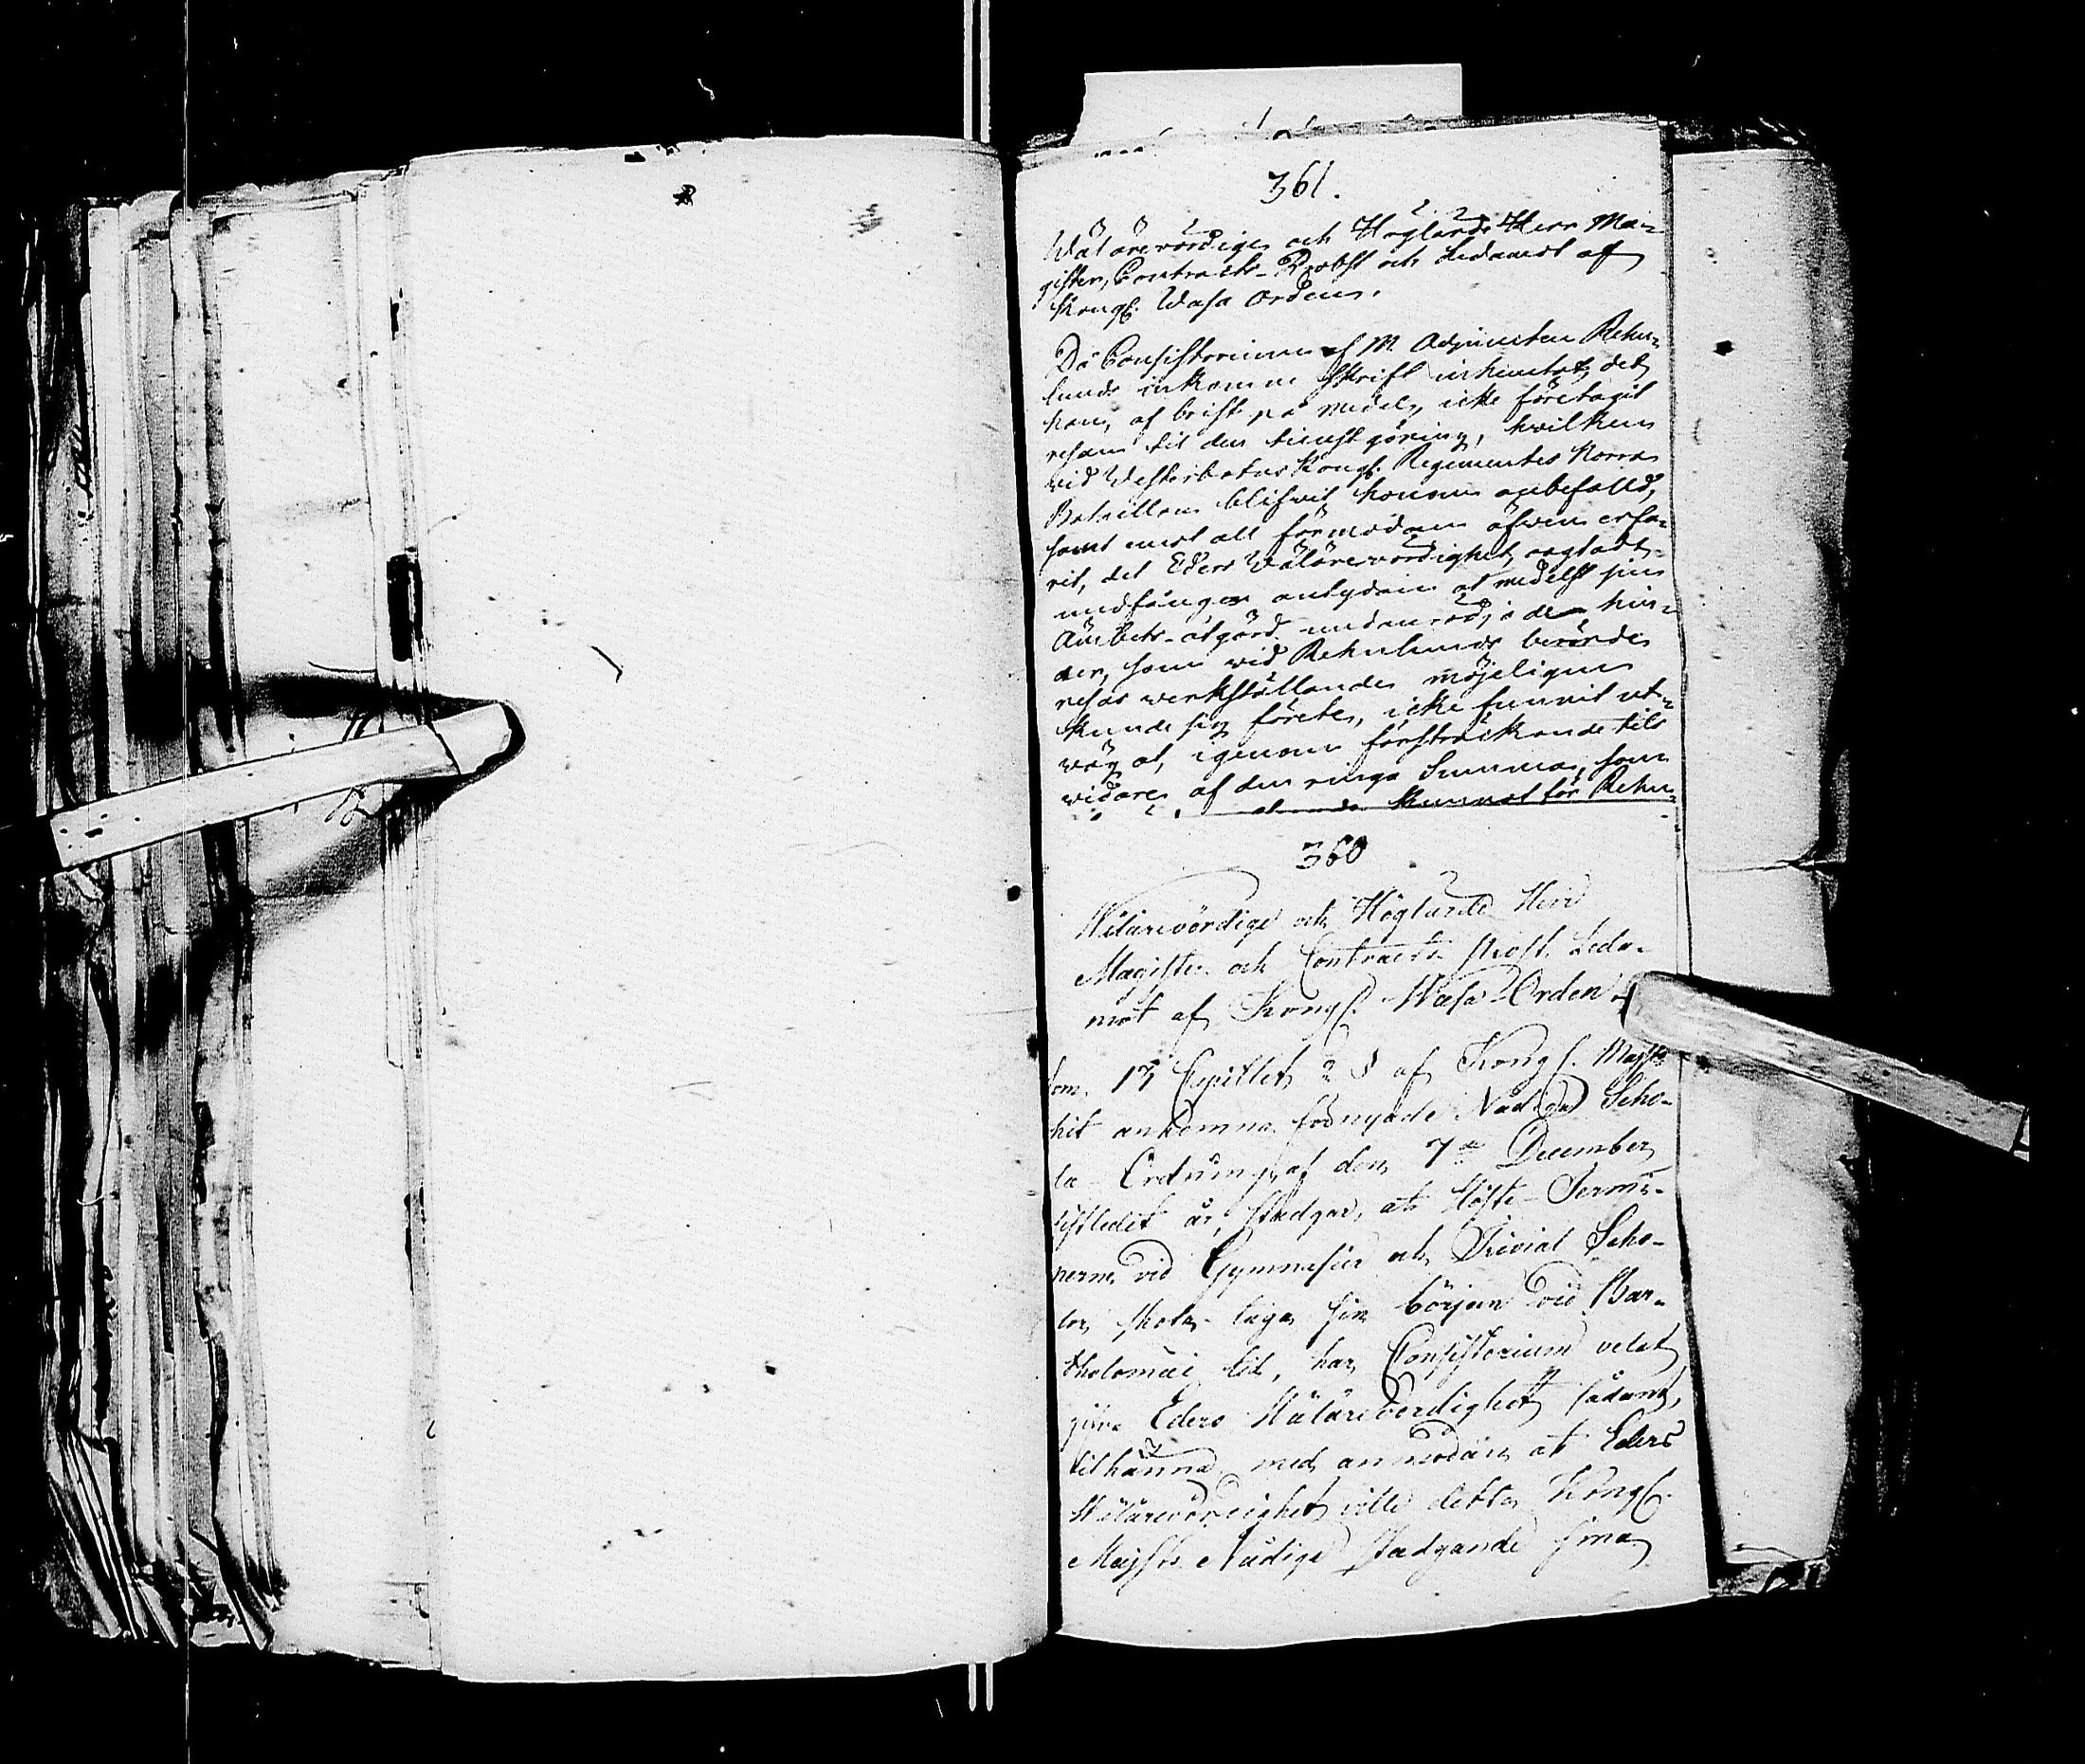 361.
Wälärevördige och Höglärde Herr Ma-
gister, Contracts-Probst och Ledamot af
Kongl. Wasa Orden.
Då Consistorium af M. Adjuncten Rehn-
lunds inkomne skrift inhemtat, det
han, af brist på medel, icke företagit
resan til den tienstgöring, hvilken
vid Westerbotns Kongl. Regementes Norra
Bataillon blifwit honom anbefalld,
samt emot all förmodan äfwen erfa-
rit, det Eders Wälärevördighet, oagtadt
undfången antydan at medelst sin
Ämbets-åtgärd undanrödja de hin-
der, som wid Rehnlunds berörde
resas werkställande möjeligen
kunde sig förete, icke funnit ut-
väg at, igenom försträckande tils
widare af den ringa Summa, som
kunnat för Rehn-
360
Wälärevördige och Höglärde Herr
Magister och Contracts Prost, Leda-
mot af Kongl. Wasa Orden.
Som 13 Capitlet 2 § af Kongl. Majsts
hit ankomna förnyade Nådiga Scho-
la-Ordning af den 7de December
sistledit år, stadgar, at Höste-Termi-
nerne vid Gymnasier och Trivial Scho-
lor skola taga sin början vid Bar-
tholomæi tid, har Consistorium velat
gifva Eders Wälärevördighet sådant,
tilkänna, med anmodan at Eders
Wälärevördighet ville detta Kongl.
Majsts Nådiga stadgande sina